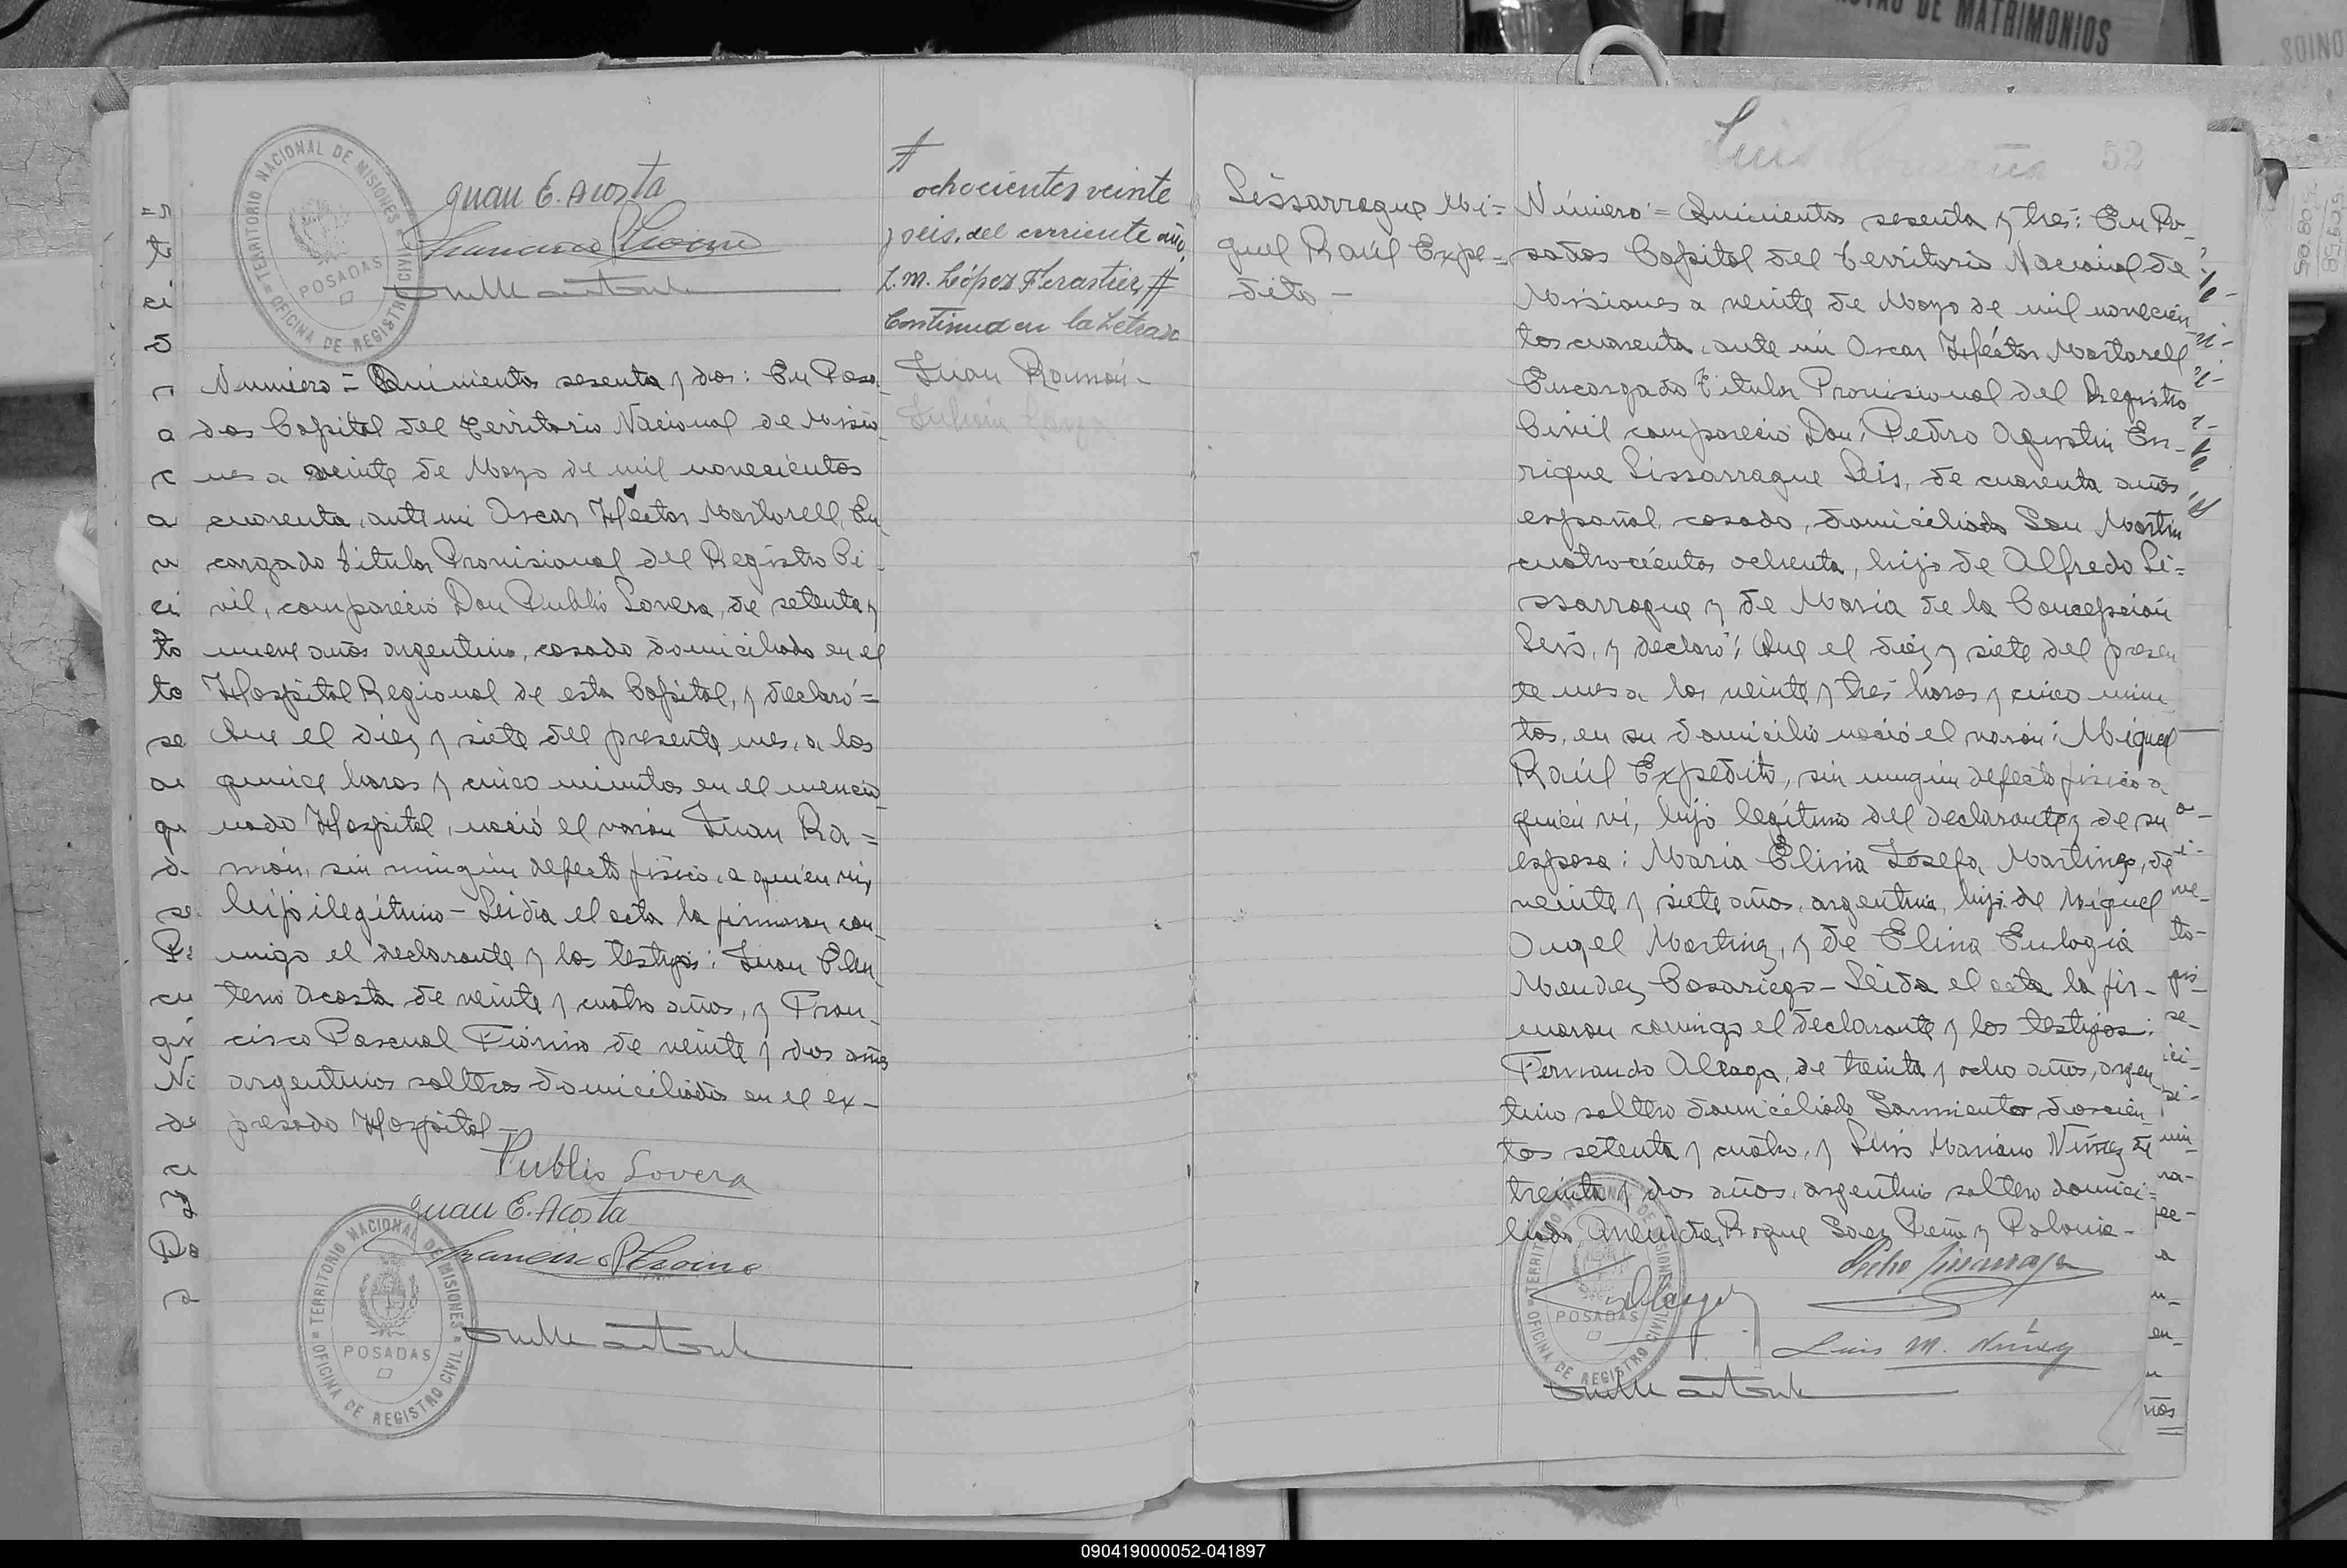 REGISTRO DE MATRIMONIOS
TERRITORIO NACIONAL DE MISIONES
POSADAS
OFICINA DE REGISTRO CIVIL
Juan E. Acosta
Numero = Quinientos sesenta y dos: En Posa
das Capital del territorio Nacional de Misio
nes a veinte de Mayo de mil novecientos
cuarenta, ante mi Oscar Héctor Martorell, En
cargado titular Provisional del Registro Ci-
vil, compareció Don Publio Lovera, de setenta y
nueve años argentino, casado domiciliado en el
Hospital Regional de esta Capital, y declaró=
Que el diez y siete del presente mes, a las
quince horas y cinco minutos en el mencio
nado Hospital, nació el varón Juan Ra=
món, sin ningún defecto físico, a quién vi,
hijo ilegítimo - Leida el acta la firmaron con
migo el declarante y los testigos: Juan Eleu
terio Acosta de veinte y cuatro años, y Fran-
cisco Pascual Fiorino de veinte y dos años
argentinos solteros domiciliados en el ex-
presado Hospital-
Publio Lovera
Juan E. Acosta
TERRITORIO NACIONAL DE MISIONES
POSADAS
OFICINA DE REGISTRO CIVIL
#
ochocientos veinte
y seis, del corriente año,
L. M. López Ferastier, #
Continua en la Letra
Juan Ramón-
Lissarrague Mi=
guel Raúl Expe=
dito -
Luis
52
Número = Quinientos sesenta y tres: En Po-
sadas Capital del territorio Nacional de
Misiones a veinte de Mayo de mil novecien
tos cuarenta, ante mi Oscar Héctor Martorell
Encargado Titular Provisional del Registro
Civil compareció Don: Pedro Agustin En-
rique Lissarrague Leis, de cuarenta años
español, casado, domiciliado San Martin
cuatrocientos ochenta, hijo de Alfredo Li=
ssarrague y de Maria de la Concepción
Leis, y declaró: Que el diez y siete del presen
te mes a las veinte y tres horas y cinco minu
tos, en su domicilio nació el varón: Miguel
Raúl Expedito, sin ningún defecto físico a
quién vi, hijo legítimo del declarante y de su
esposa: Maria Elina Josefa Martinez, de
veinte y siete años, argentina, hija de Miguel
Angel Martinez, y de Elina Eulogia
Mendez Casariego - Leida el acta la fir-
maron conmigo el declarante y los testigos:
Fernando Aleaga, de treinta y ocho años, argen
tino soltero domiciliado Sarmiento doscien
tos setenta y cuatro, y Luis Mariano Nuñez de
treinta y dos años, argentino soltero domici=
liado Avenida, Roque Saez Peña y Polonia-
TERRITORIO NACIONAL DE MISIONES
POSADAS
OFICINA DE REGISTRO CIVIL
Luis M. Nuñez
090419000052-041897